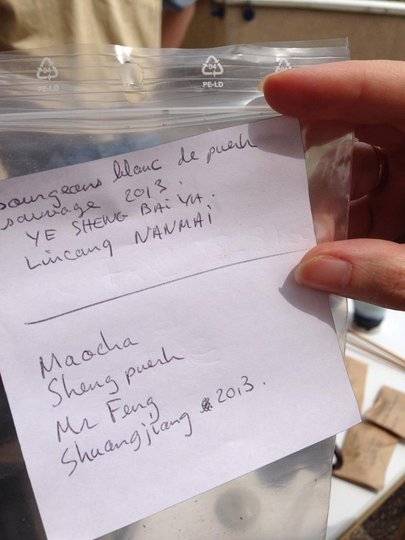 04
PE-LD
bourgeons blanc de puerh
sauvage 2013.
YE SHENG BAI YA.
Lincang NANMAI
Maocha
Sheng puerh
Mr Feng
Shuangjiang 2013.